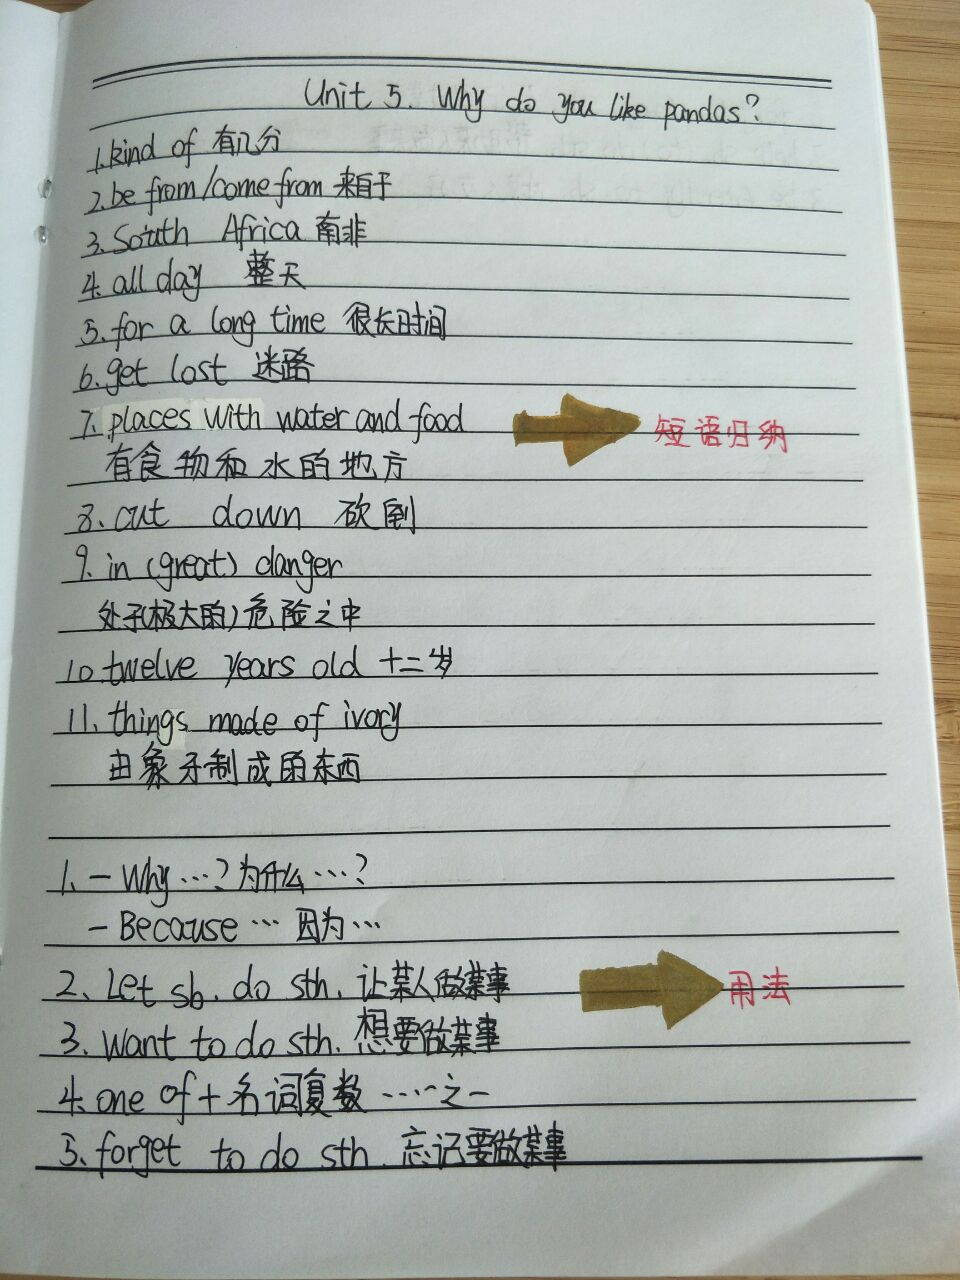 Unit 5. Why do you like pandas?
1.kind of 有几分
2.be from/come from 来自于
3.South Africa 南非
4.all day 整天
5.for a long time 很长时间
6.get lost 迷路
7.places with water and food
短语归纳
有食物和水的地方
8.cut down 砍倒
9.in (great) danger
处于(极大的)危险之中
10.twelve years old 十二岁
11.things made of ivory
由象牙制成的东西
1.—Why…?为什么…?
—Because… 因为…
2.Let sb.do sth.让某人做某事
用法
3.Want to do sth.想要做某事
4.one of+名词复数 ……之一
5.forget to do sth.忘记要做某事